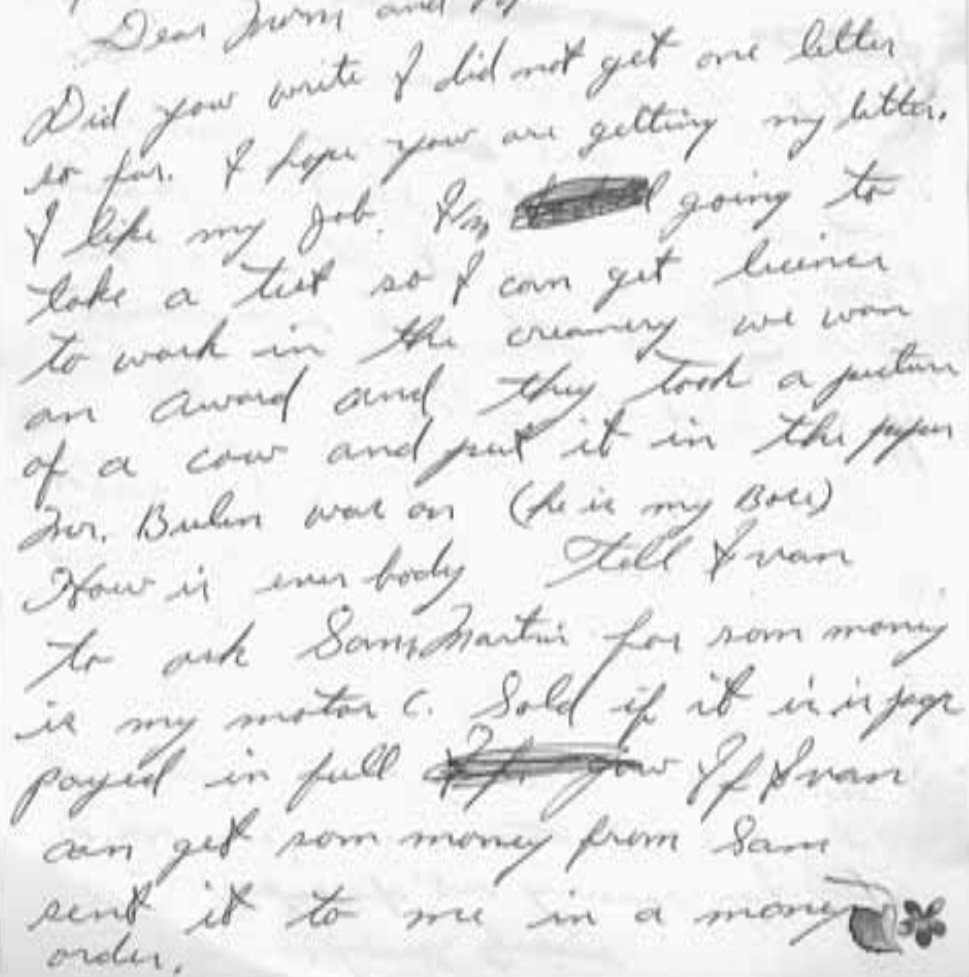 Dear Mom and
Did you write I did not get one letter
so far. I hope you are getting my letter.
I like my job. I'm going to
take a test so I can get
to work in the creamery we won
an award and they took a picture
of a cow and put it in the paper
Mr. was on (he is my Boss)
How is ever body Tell Ivan
to ask Sam Martin for som money
is my motor C. Sold if it is is
payed in full If Ivan
can get som money from Sam
sent it to me in a money
order.